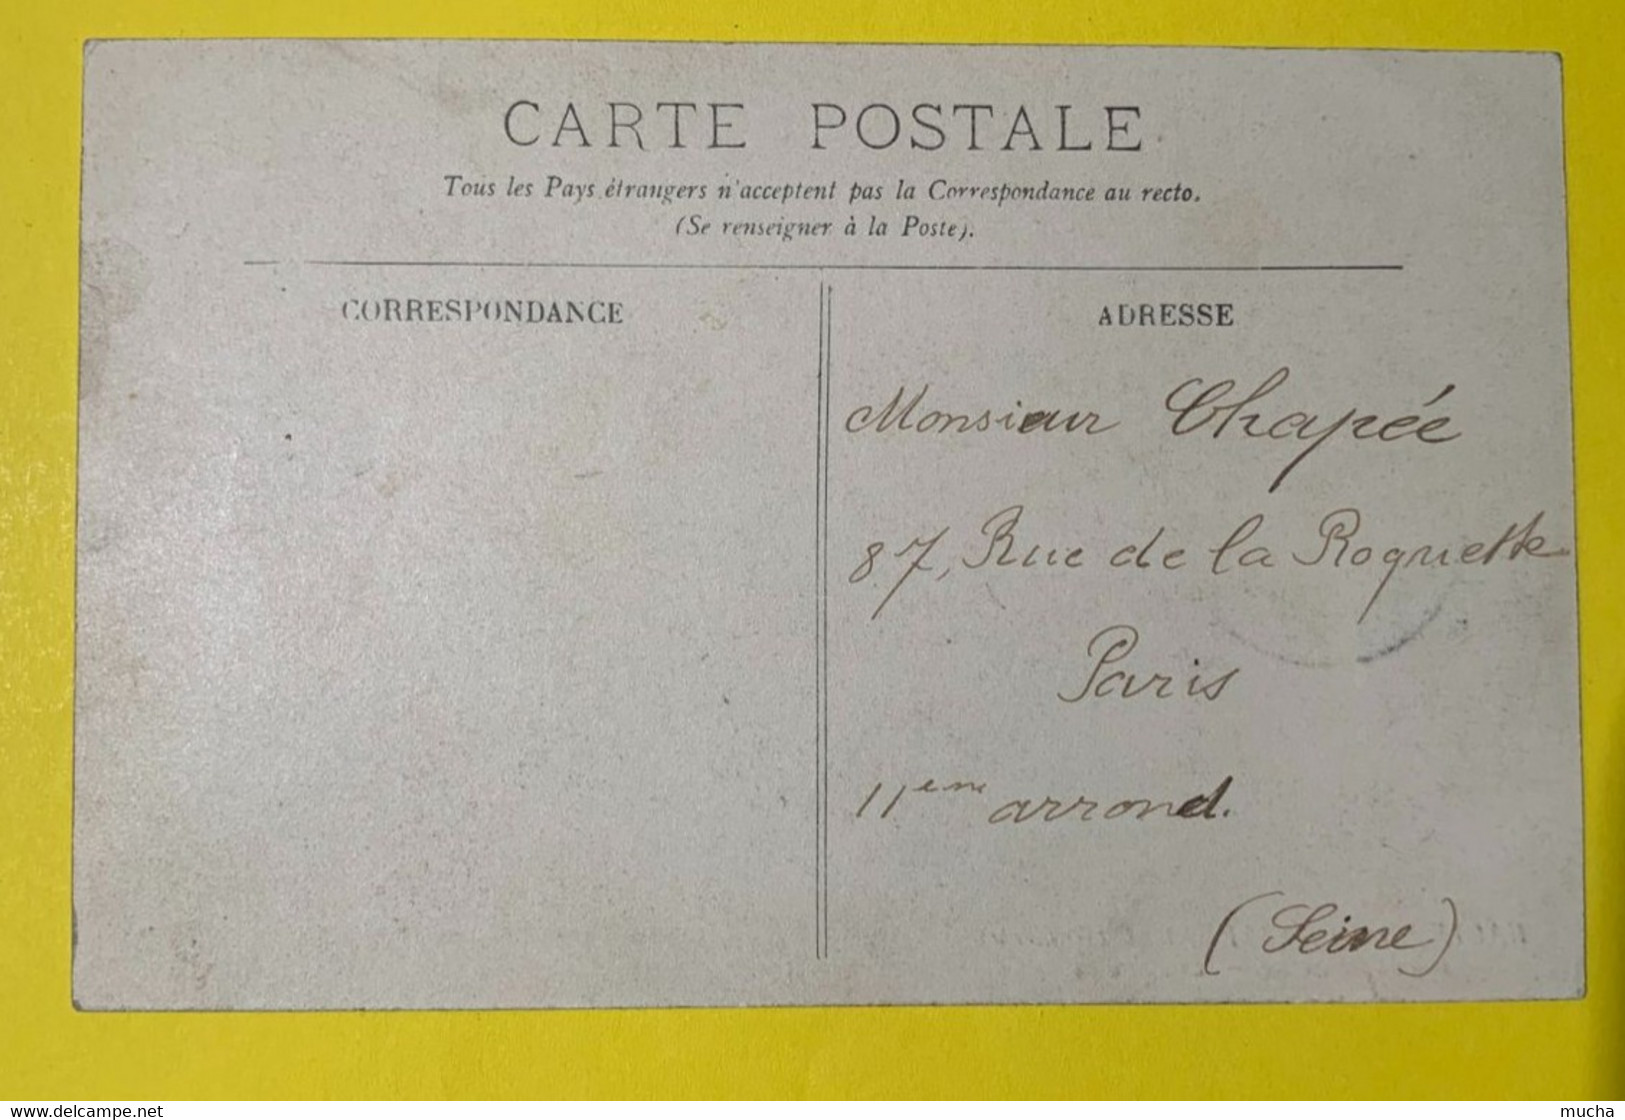 CARTE POSTALE
Tous les Pays étrangers n'acceptent pas la Correspondance au recto.
(Se renseigner à la Poste).
CORRESPONDANCE
ADRESSE
Monsieur Chapée
87, Rue de la Roquette
Paris
11eme arrond.
(Seine)
www.delcampe.net
mucha